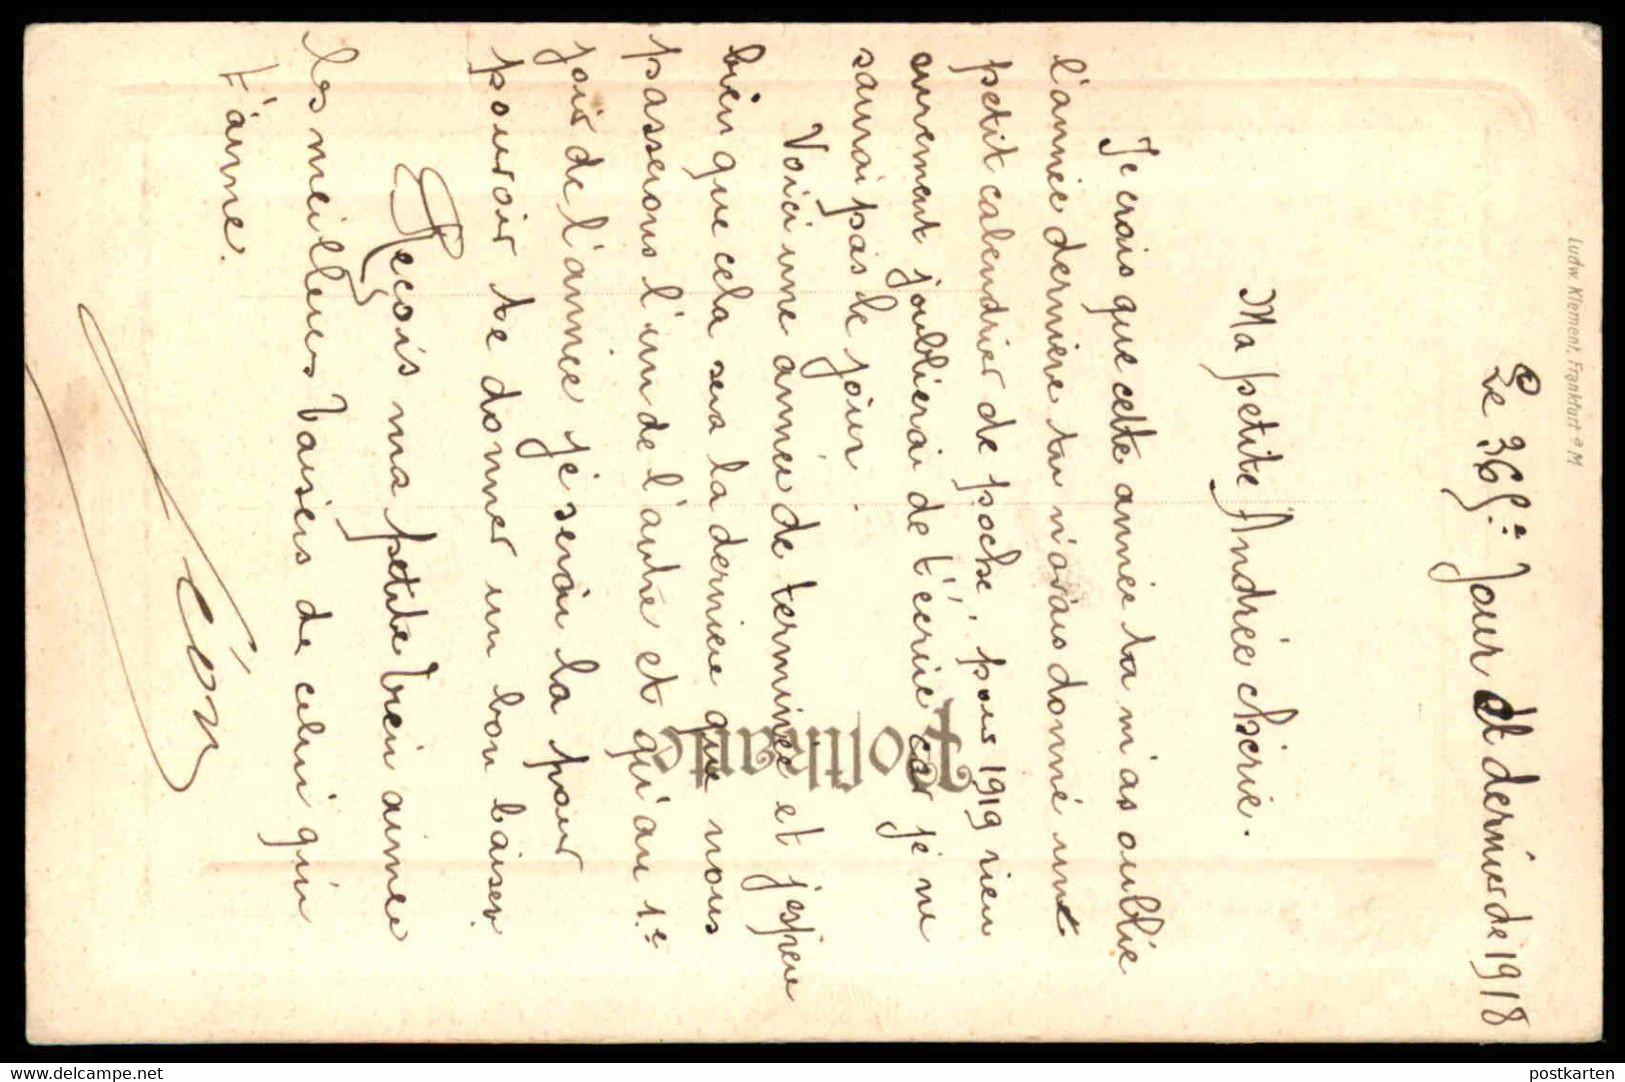 Le 365.e Jour et dernier de 1918
Ma petite Andrée chérie.
Je crois que cette année ta m'as oublié
l'année derniere tu m'avais donné un
petit calendrier de poche, pour 1919 rien
aurement j'oublierai de t'écrire car je ne
saurai pas le jour.
Voici une année de terminée et j'espere
bien que cela sera la derniere que nous
passerons l'un de l'autre et qu'au 1.er
jour de l'année je serai la pour
pouvoir te donner un bon baiser.
Reçois ma petite bien aimée
les meilleurs baisers de celui qui
t'aime.
Léon
Postkarte
Ludw. Klement, Frankfurt a M
www.delcampe.net
postkarten